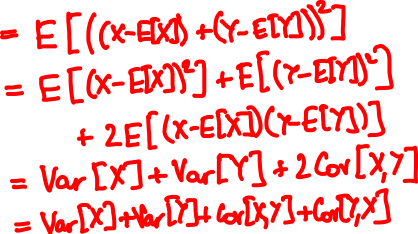 = E[((X-E[X])+(Y-E[Y]))²]
= E[(X-E[X])²]+E[(Y-E[Y])²]
+ 2E[(X-E[X])(Y-E[Y])]
= Var[X]+Var[Y]+2Cov[X,Y]
= Var[X]+Var[Y]+Cov[X,Y]+Cov[Y,X]